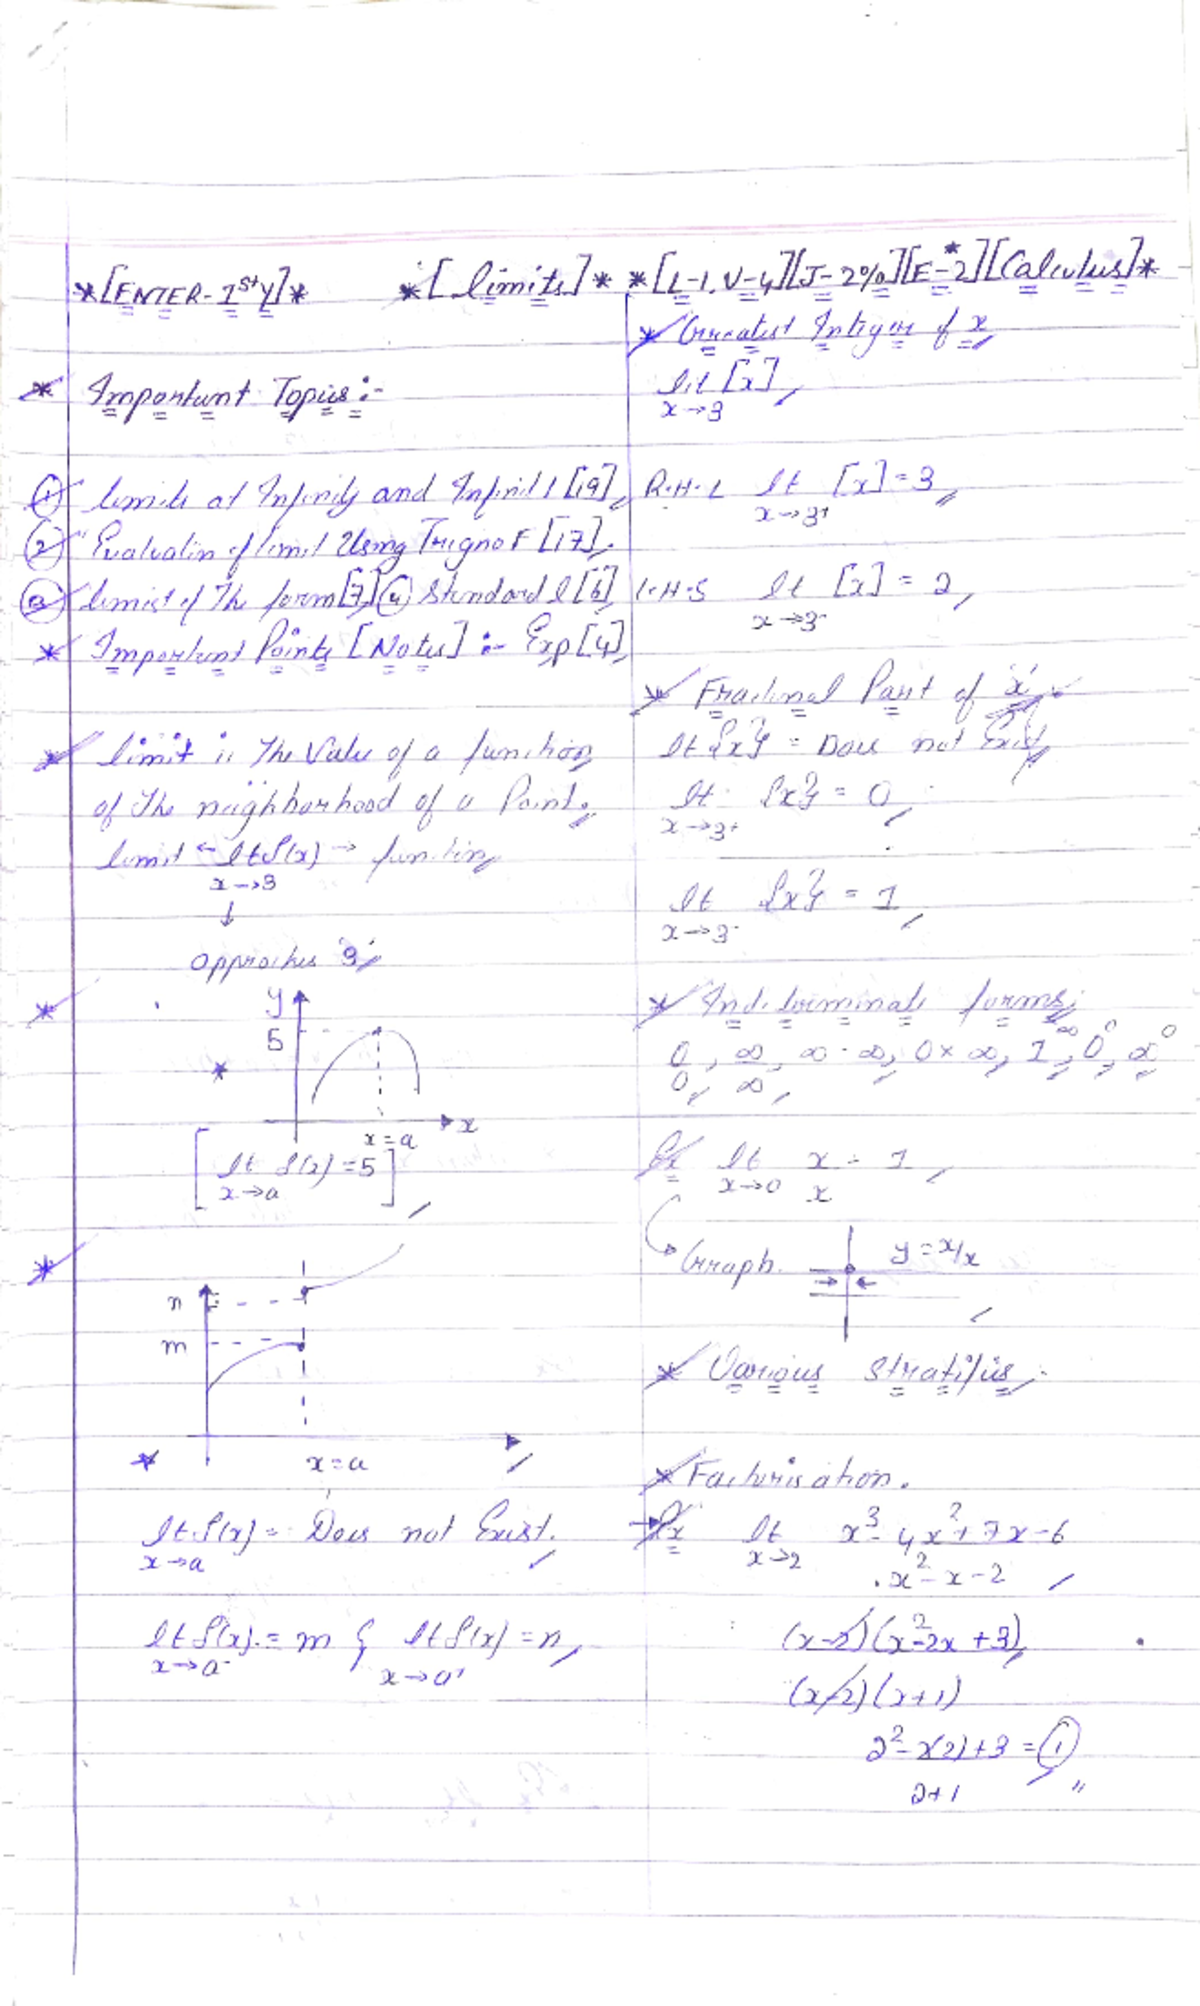 *[ENTER-1st Y]* *[limits]* *[L-1, V-4][J-2%][E-2*][Calculus]*
* Important Topics:-
① limits at Infinity and Infinit l [19],
② Evaluatin of limit Using Trigno F [17].
③ limist of The form [7] ④ Standard l [6],
* Important Points [Notes] :- Exp [4],
* limit is The Value of a function
of The neighborhood of a Point.
limit ← lt f(x) → function
x→3
↓
approches '3'
y
5
x
x=a
[lt f(x) = 5]
x→a
n
m
x=a
lt f(x) = Does not Exist.
x→a
lt f(x) = m & lt f(x) = n,
x→a⁻ x→a⁺
* Greatest Integer of x
lit [x],
x→3
R.H.L lt [x] = 3
x→3⁺
L.H.S lt [x] = 2,
x→3⁻
* Fractional Part of 'x'
lt {x} = Does not Exist
lt {x} = 0,
x→3⁺
lt {x} = 1,
x→3⁻
* Indeterminate forms
0/0, ∞/∞, ∞-∞, 0×∞, 1^∞, 0^0, ∞^0
Ex lt x/x = 1,
x→0
Graph. y = x/x
* Various
* Factorisation.
→Ex lt x³-4x²+7x-6
x→2 x²-x-2
(x-2)(x²-2x+3)
(x-2)(x+1)
2²-2(2)+3 = ①
2+1